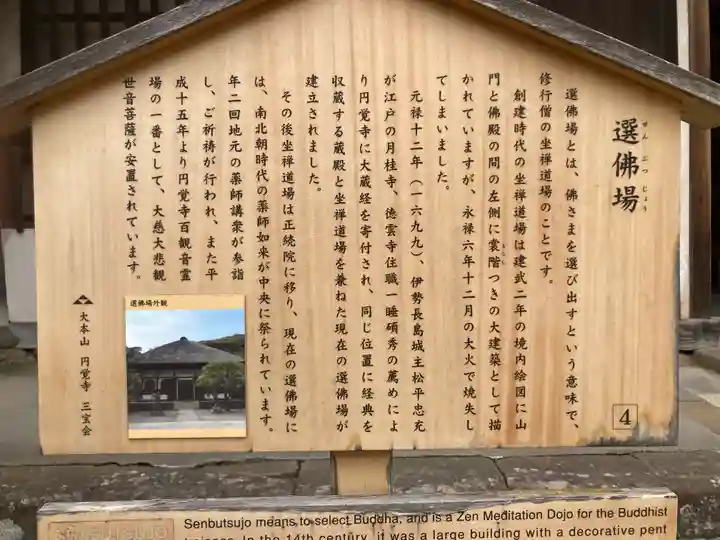 選佛場
せん ぶつ じょう
選佛場とは、佛さまを選び出すという意味で、
修行僧の坐禅道場のことです。
創建時代の坐禅道場は建武二年の境内絵図に山
門と佛殿の間の左側に裳階つきの大建築として描
かれていますが、永禄六年十二月の大火で焼失し
てしまいました。
元禄十二年(一六九九)、伊勢長島城主松平忠充
が江戸の月桂寺、徳雲寺住職一睡碩秀の薦めによ
り円覚寺に大蔵経を寄付され、同じ位置に経典を
収蔵する蔵殿と坐禅道場を兼ねた現在の選佛場が
建立されました。
その後坐禅道場は正続院に移り、現在の選佛場に
は、南北朝時代の薬師如来が中央に祭られています。
年二回地元の薬師講衆が参詣
し、ご祈祷が行われ、また平
成十五年より円覚寺百観音霊
場の一番として、大慈大悲観
世音菩薩が安置されています。
選佛場外観
大本山 円覚寺 三玄会
4
Senbutsujo means to select Buddha, and is a Zen Meditation Dojo for the Buddhist
trainees. In the 14th century, it was a large building with a decorative pent